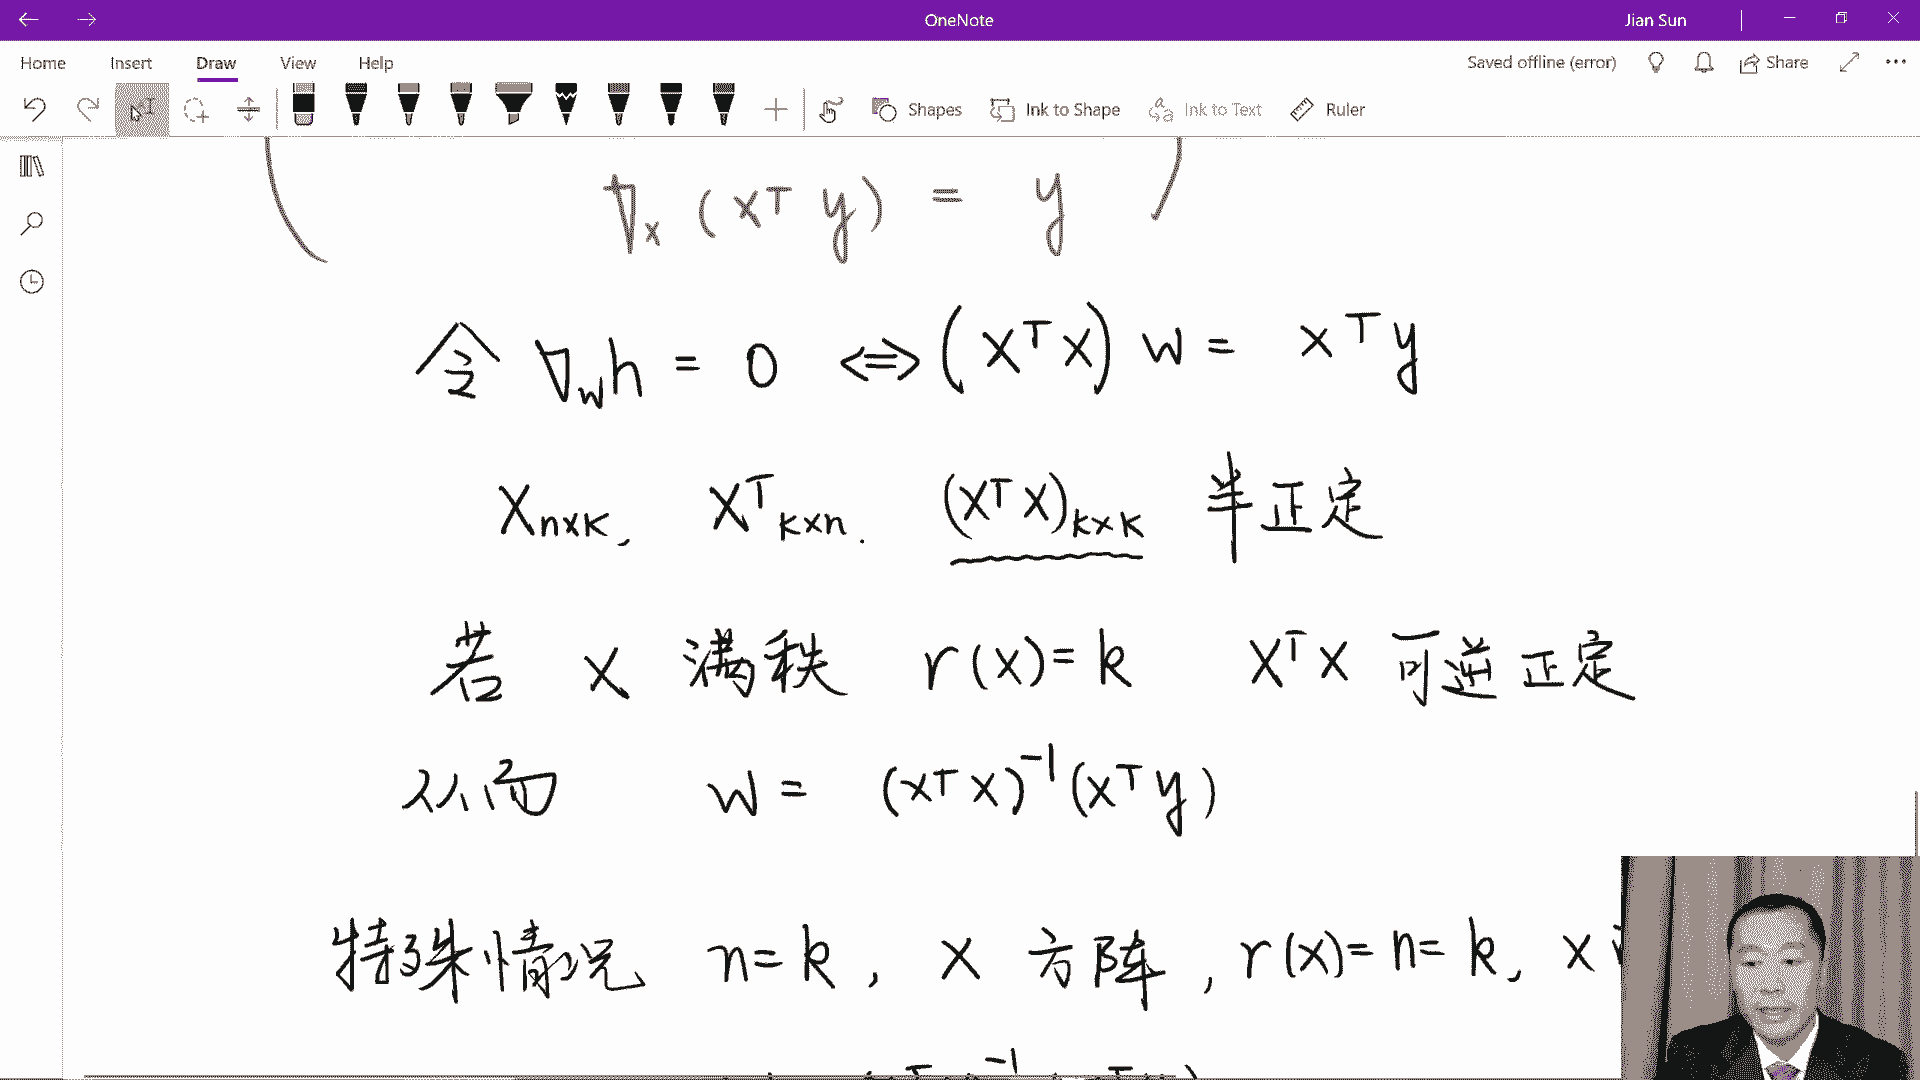 OneNote
Jian Sun
Home Insert Draw View Help
Saved offline (error)
Share
Shapes
Ink to Shape
Ink to Text
Ruler
∇ₓ (xᵀ y) = y
令 ∇_w h = 0 ⟺ (XᵀX) w = Xᵀy
X_{n×k}, Xᵀ_{k×n}. (XᵀX)_{k×k} 半正定
若 X 满秩 r(X)=k XᵀX 可逆 正定
从而 w = (XᵀX)⁻¹(Xᵀy)
特殊情况 n=k, X 方阵, r(X)=n=k, X